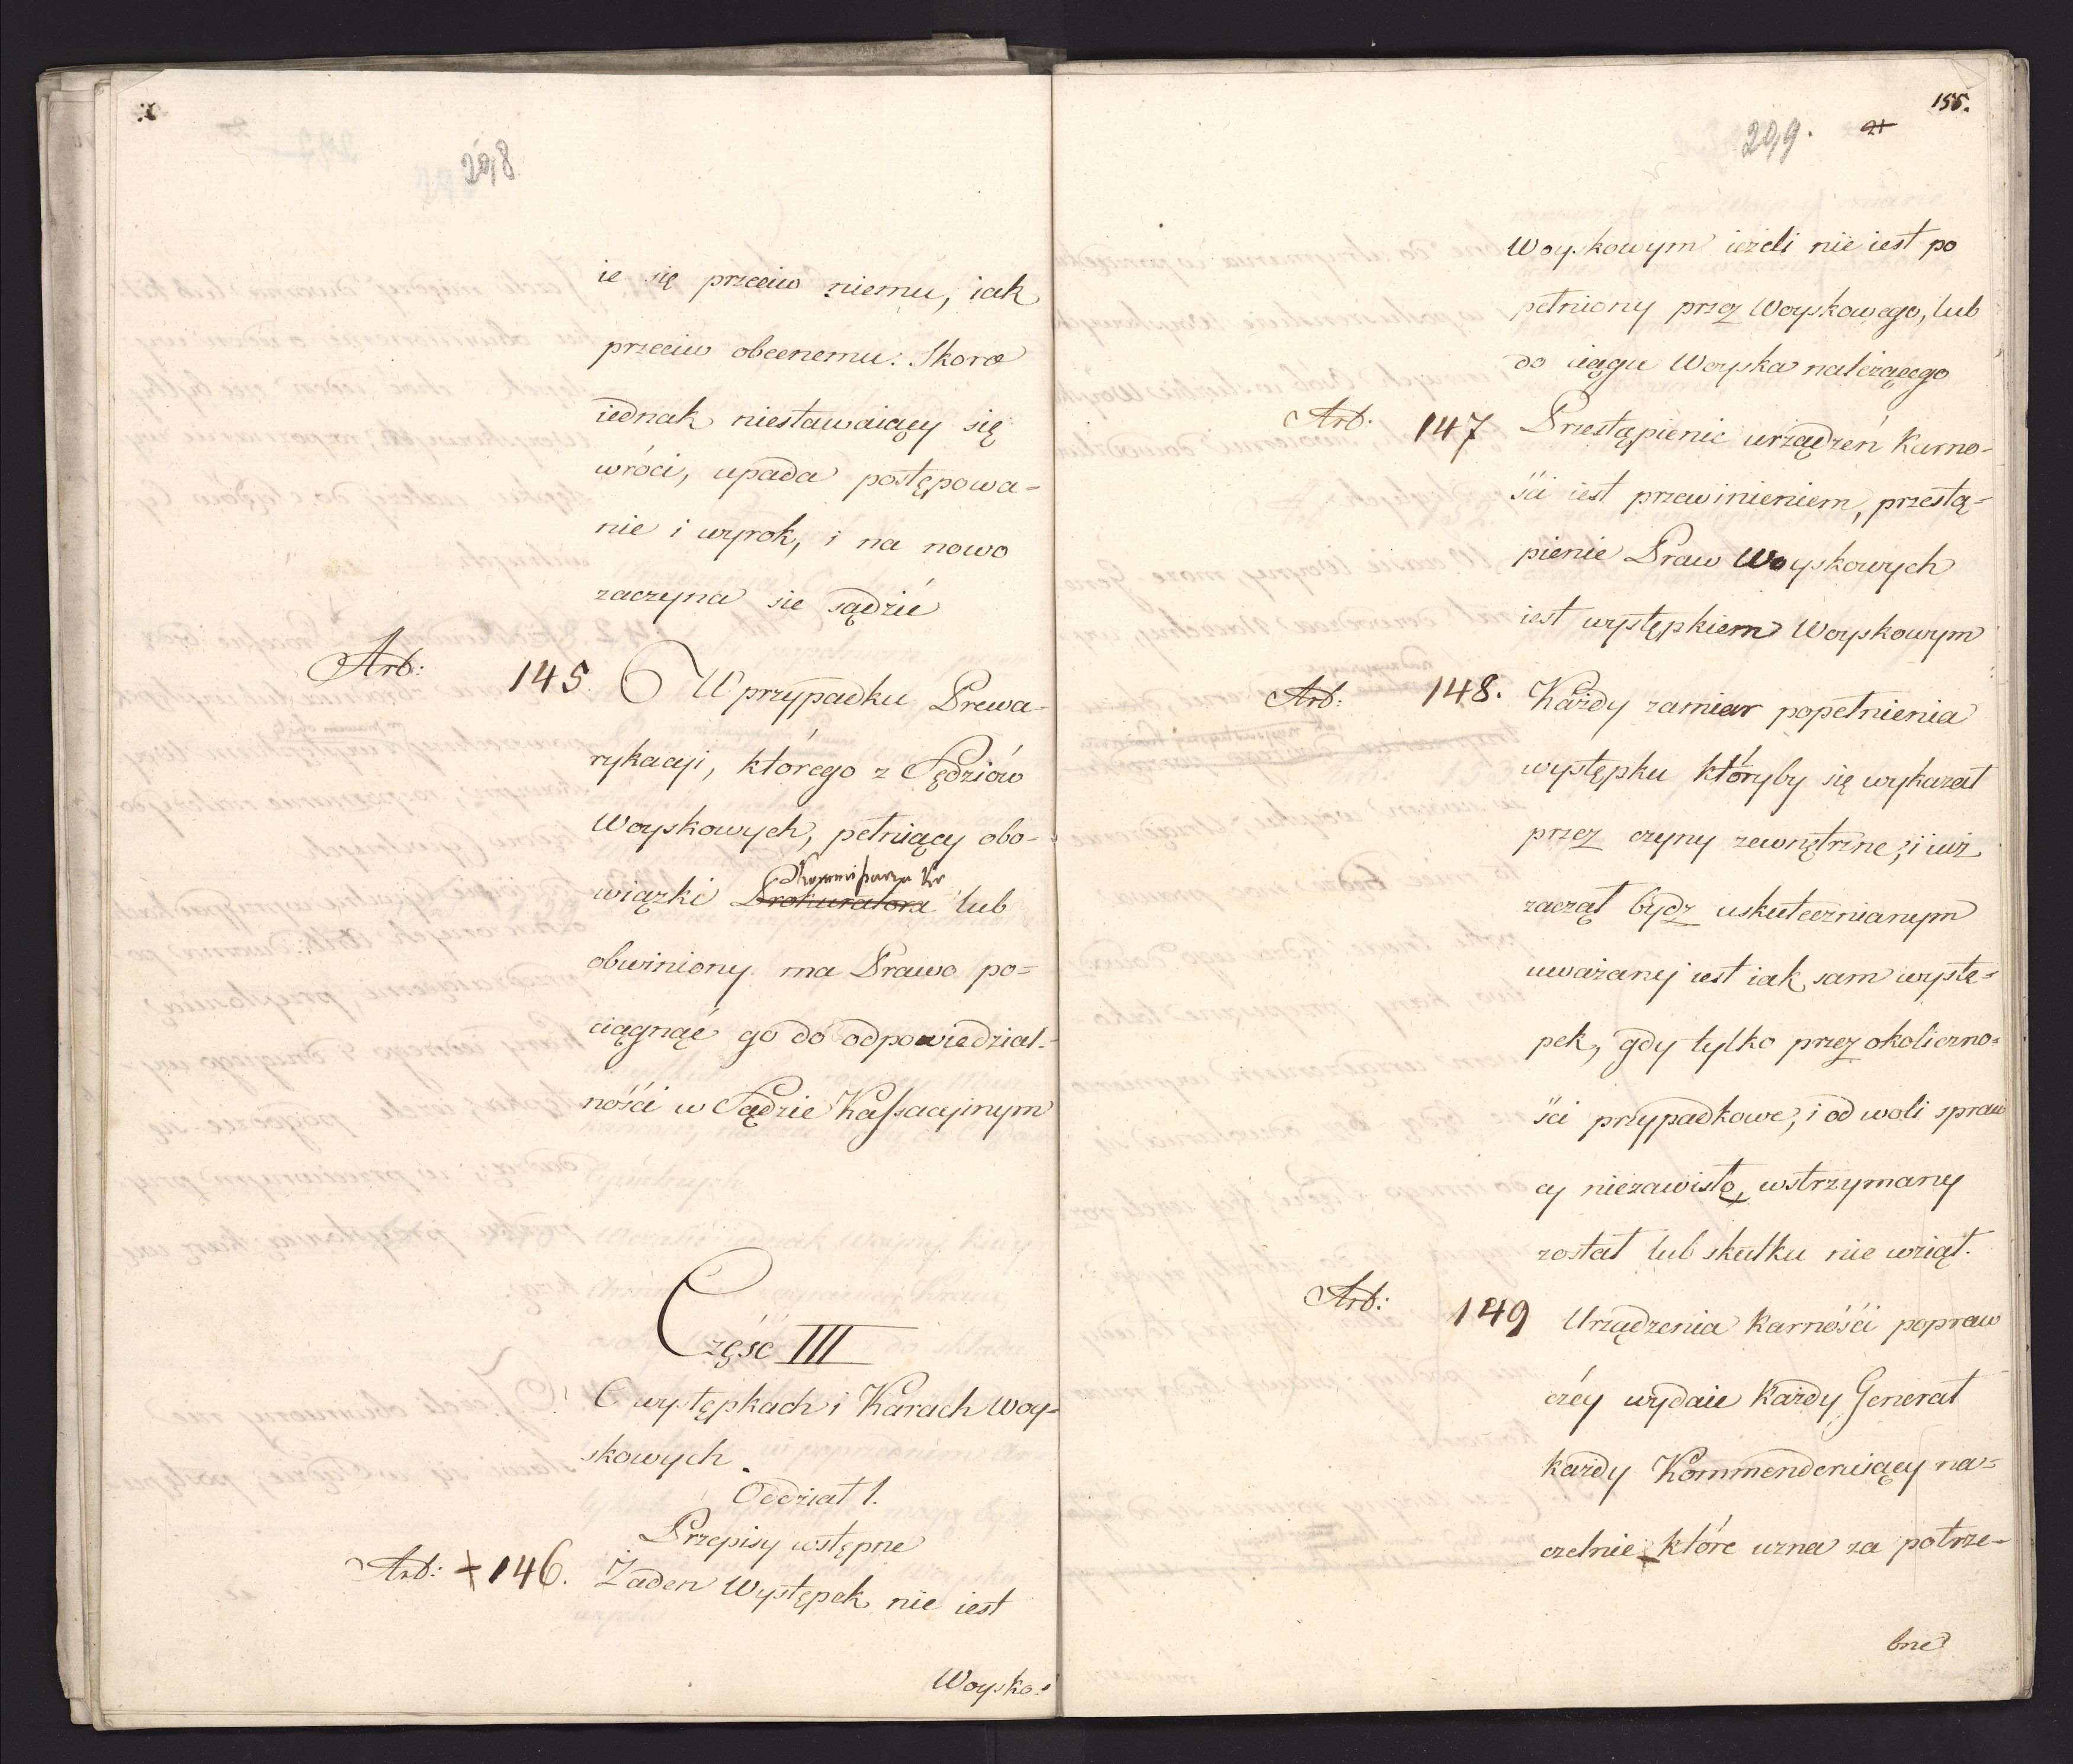 298
ie się przeciw niemu, iak
przeciw obecnemu. Skoro
iednak niestawaiący się
wróci, upada postępowa-
nie i wyrok, i na nowo
zaczyna się sądzić
Art: 145. W przypadku Prewa-
rykacyi, którego z Sędziów
Woyskowych, pełniący obo-
Kommissarza
wiązki Prokuratora lub
obwiniony ma Prawo po=
ciągnąć go do odpowiedzial-
ności w Sądzie Kassacyinym
Część III
O występkach i Karach Woy=
skowych.
Oddział 1.
Przepisy wstępne
Art: 146. Żaden Występek nie iest
Woysko=
155.
299. 21
Woyskowym ieżeli nie iest po
pełniony przez Woyskowego, lub
do ciągu Woyska należącego
Art: 147 Przestąpienie urządzeń Karno-
ści iest przewinieniem, przestą=
pienie Praw Woyskowych
iest występkiem Woyskowym
Art: 148. Każdy zamiar popełnienia
występku któryby się wykazał
przez czyny zewnętrzne, i iuż
zaczął bydz uskutecznianym
uważany iest iak sam wystę=
pek, gdy tylko przez okoliczno=
ści przypadkowe, i od woli spraw
cy niezawisłe, wstrzymany
został lub skutku nie wziął.
Art: 149 Urządzenia Karności popraw
czéy wydaie Każdy Generał
każdy Kommenderuiący na=
czelnie które uzna za potrze-
bne